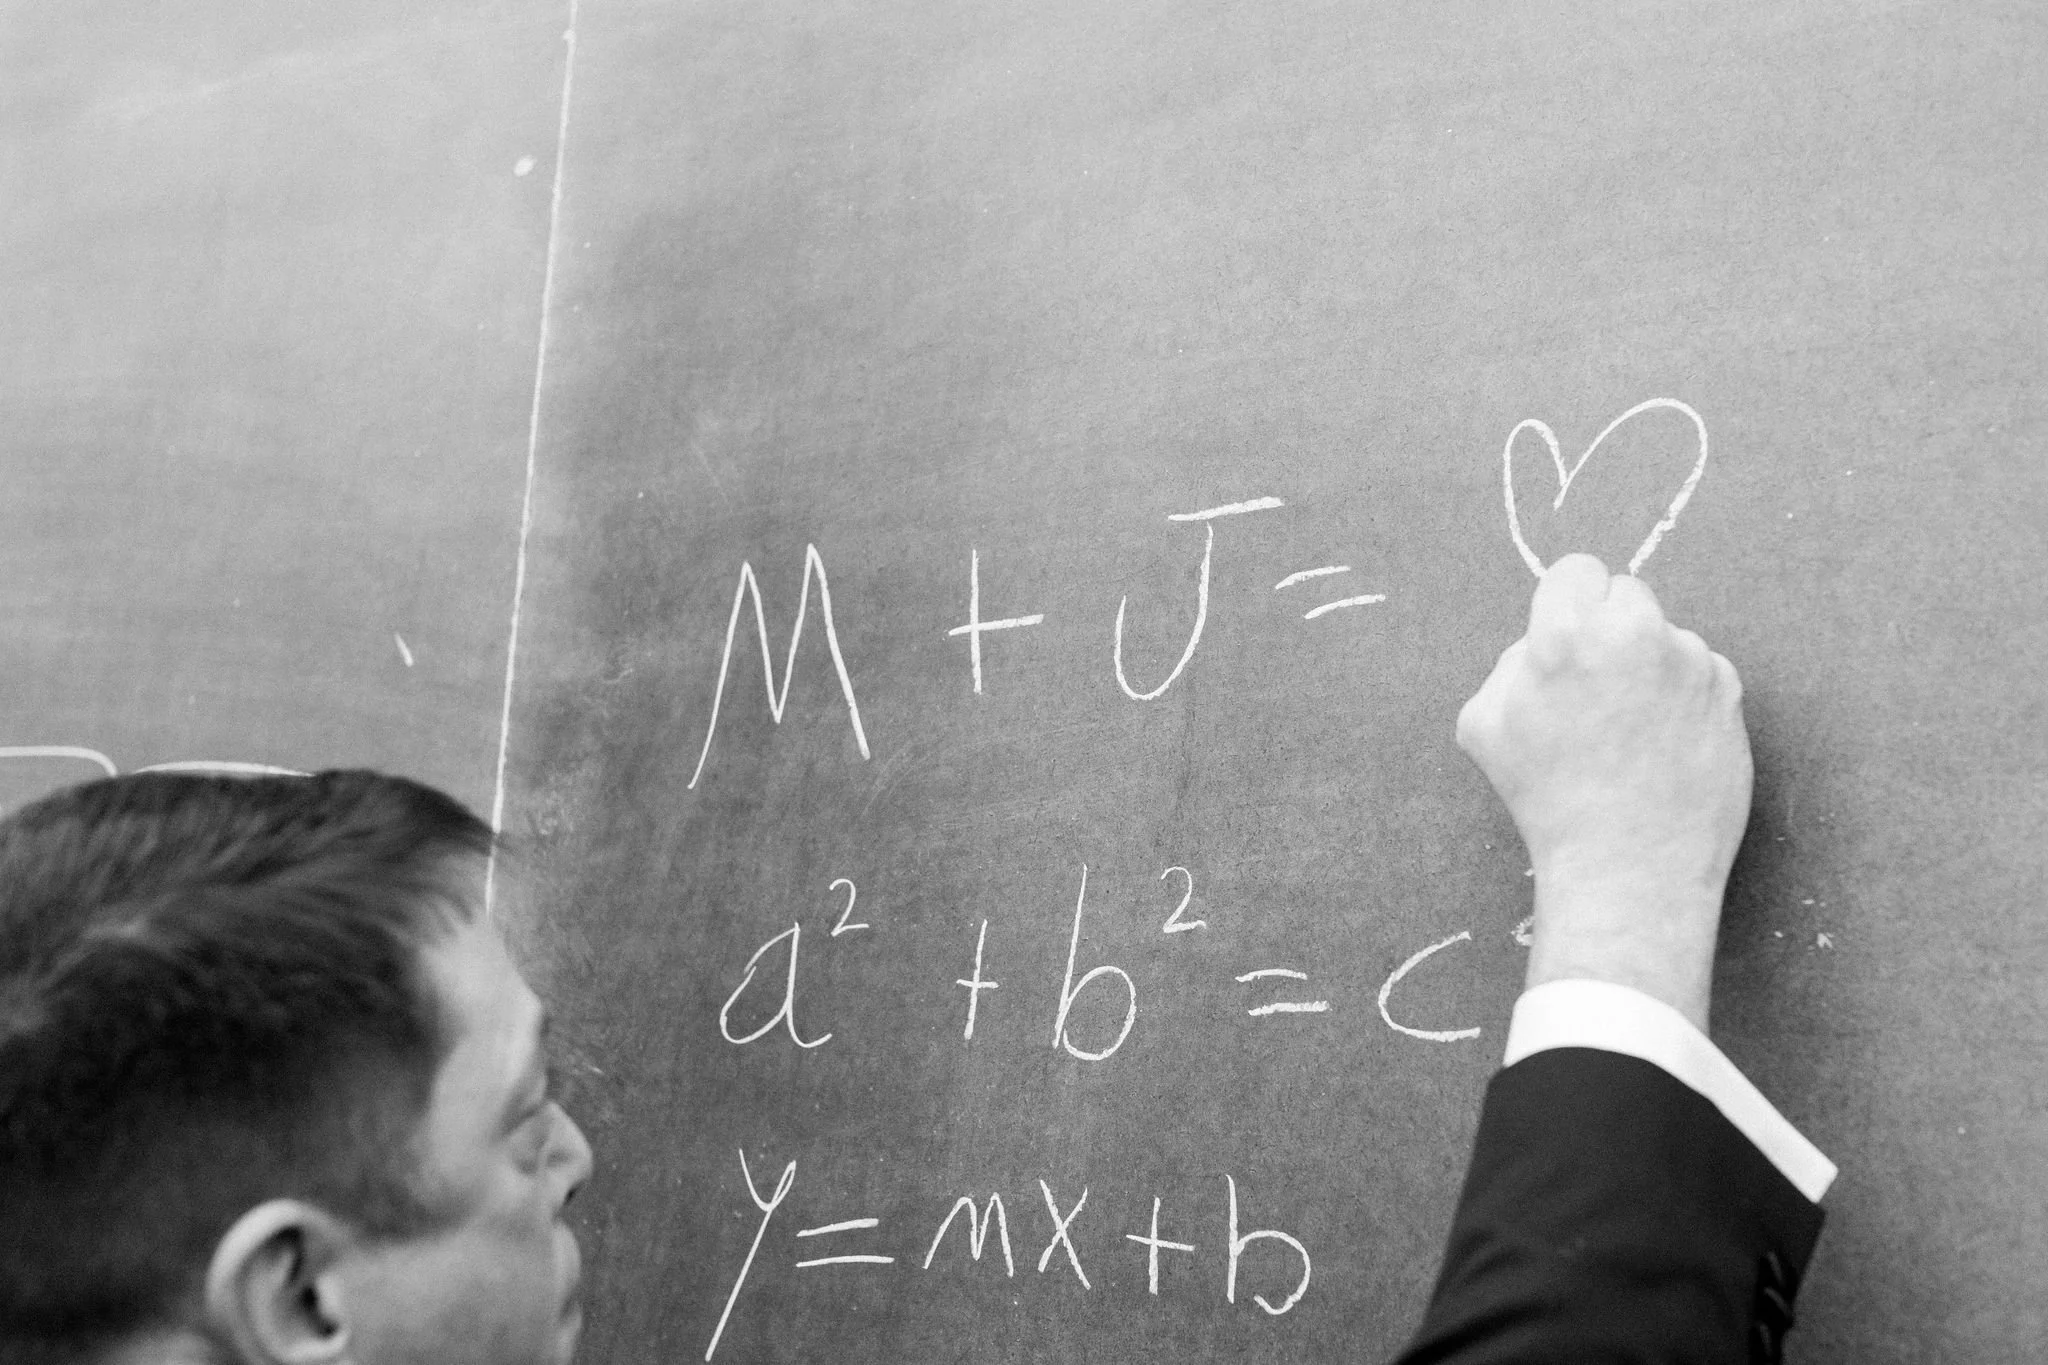 M + J = ♡
a² + b² = c²
y = mx + b